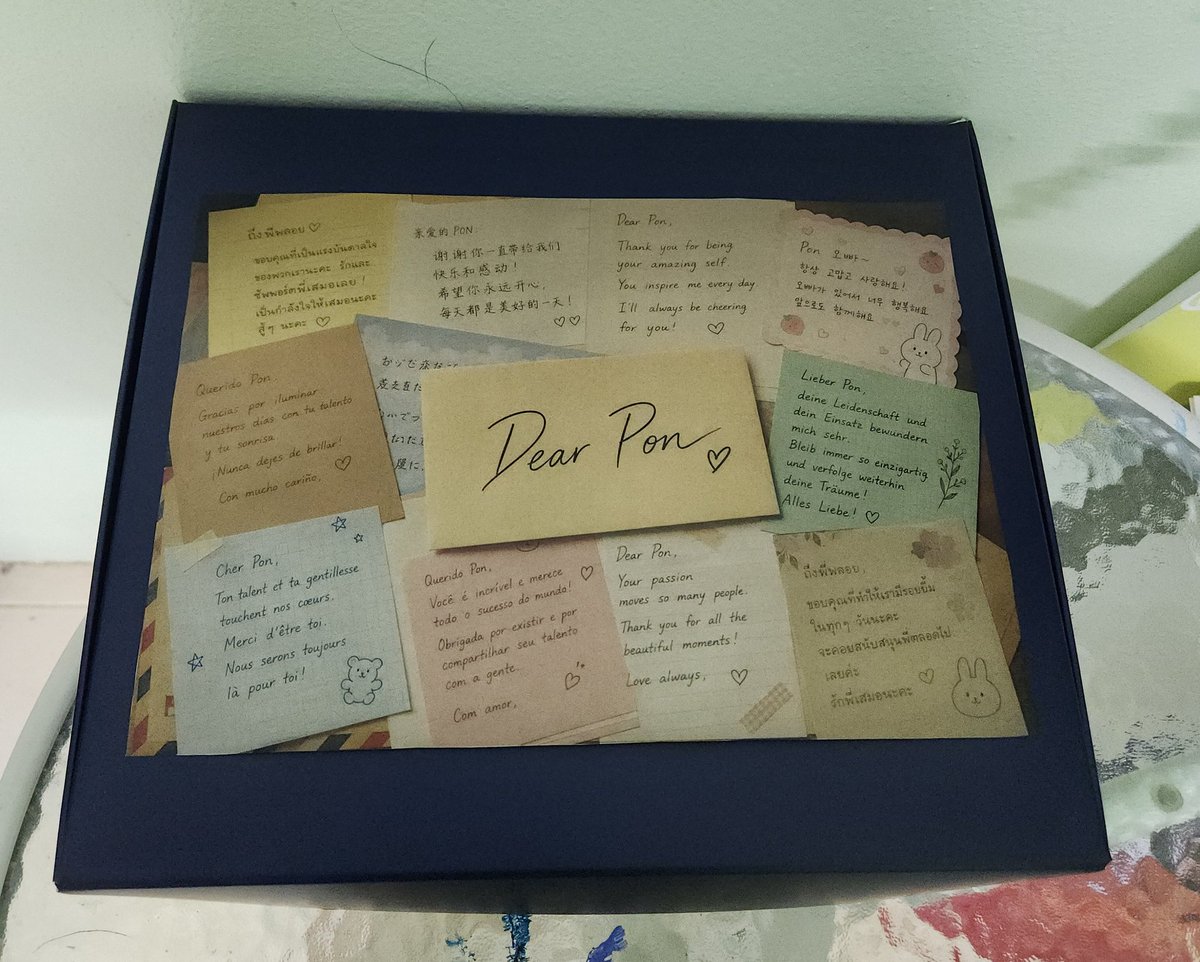 ถึงพี่พลอย ♡
ขอบคุณที่เป็นแรงบันดาลใจ
ของพวกเรานะคะ รักและ
ซัพพอร์ตพี่เสมอเลย!
เป็นกำลังใจให้เสมอนะคะ
สู้ๆ นะคะ ♡
亲爱的 PON:
谢谢你一直带给我们
快乐和感动!
希望你永远开心,
每天都是美好的一天!
♡♡
Dear Pon,
Thank you for being
your amazing self
You inspire me every day
I'll always be cheering
for you! ♡
Pon 오빠~
항상 고맙고 사랑해요!
오빠가 있어서 너무 행복해요
앞으로도 함께해요
Querido Pon.
Gracias por iluminar
nuestros días con tu talento
y tu sonrisa.
¡Nunca dejes de brillar!
♡
Con mucho cariño,
Dear Pon ♡
Lieber Pon,
deine Leidenschaft und
dein Einsatz bewundern
mich sehr.
Bleib immer so einzigartig
und verfolge weiterhin
deine Träume!
Alles Liebe! ♡
Cher Pon,
Ton talent et ta gentillesse
touchent nos cœurs.
Merci d'être toi.
Nous serons toujours
là pour toi!
Querido Pon,
Você é incrível e merece
todo o sucesso do mundo!
Obrigada por existir e por
compartilhar seu talento
com a gente.
Com amor,
Dear Pon,
Your passion
moves so many people.
Thank you for all the
beautiful moments!
Love always, ♡
ถึงพี่พลอย,
ขอบคุณที่ทำให้เรามีรอยยิ้ม
ในทุกๆ วันนะคะ
จะคอยสนับสนุนพี่ตลอดไป
เลยค่ะ
รักพี่เสมอนะคะ